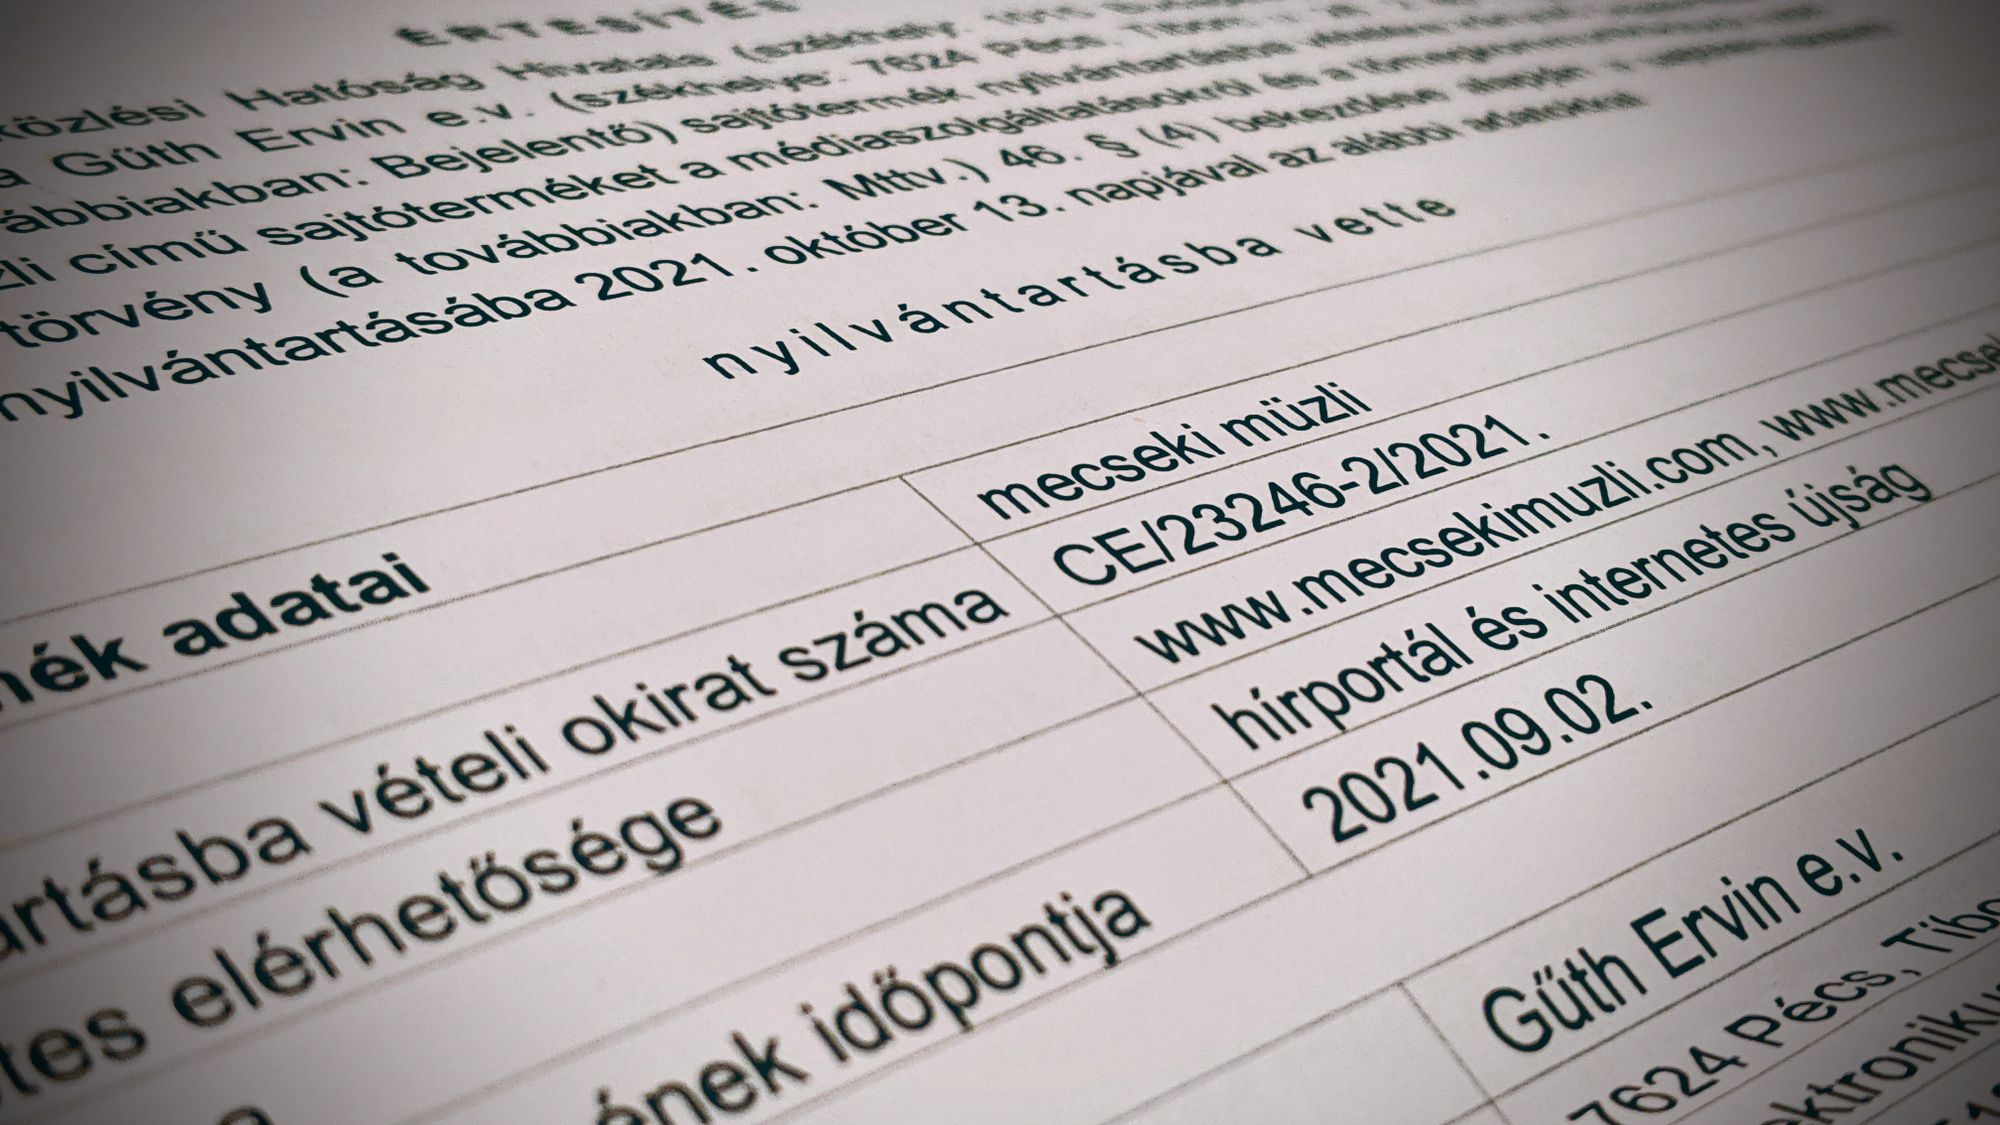 ÉRTESÍTÉS
közlési Hatóság Hivatala (székhely: 1015
a Gűth Ervin e.v. (székhelye: 7624 Pécs, Tibor
ábbiakban: Bejelentő) sajtótermék nyilvántartásba vétele
zli című sajtóterméket a médiaszolgáltatásokról és a tömegkommunikáció
törvény (a továbbiakban: Mttv.) 46. § (4) bekezdése alapján a
nyilvántartásába 2021. október 13. napjával az alábbi adatokkal
nyilvántartásba vette
nék adatai
mecseki müzli
artásba vételi okirat száma CE/23246-2/2021.
tes elérhetősége www.mecsekimuzli.com, www.mecse
hírportál és internetes újság
ének időpontja 2021.09.02.
Gűth Ervin e.v.
7624 Pécs, Tibo
ektroniku